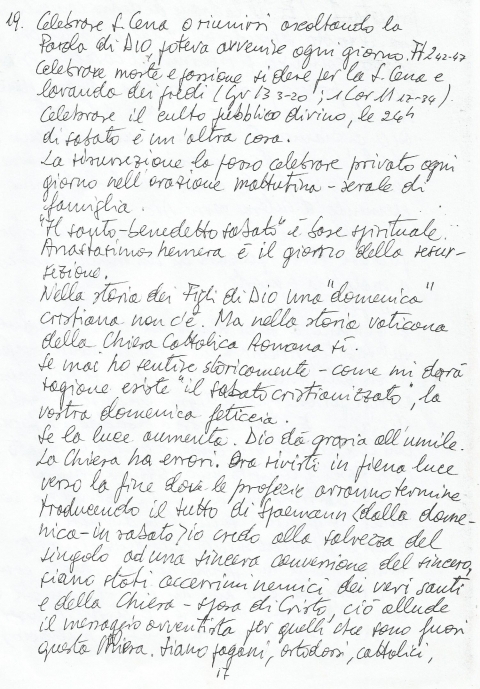 19. Celebrare S. Cena o riunirsi ascoltando la
Parola di DIO, poteva avvenire ogni giorno. At 2 42-47
Celebrare morte e passione si deve per la S. Cena e
lavanda dei piedi (Gv 13 3-20; 1 Cor 11 17-34).
Celebrare il culto pubblico divino, le 24h
di sabato è un'altra cosa.
La risurrezione la posso celebrare privato ogni
giorno nell'orazione mattutina - serale di
famiglia.
"Il santo-benedetto sabato" è base spirituale.
Anastasimos hemera è il giorno della resur-
rezione.
Nella storia dei Figli di Dio una "domenica"
cristiana non c'è. Ma nella storia vaticana
della Chiesa Cattolica Romana sì.
Se mai ho sentire storicamente - come mi darà
ragione esiste "il sabato cristianizzato", la
vostra domenica feticcia.
Se la luce aumenta. Dio dà grazia all'umile.
La Chiesa ha errori. Ora rivisti in piena luce
verso la fine dove le profezie avranno termine
traducendo il tutto di Spaemann (dalla dome-
nica - in sabato) io credo alla salvezza del
singolo ad una sincera conversione del sincero,
siano stati accerrimi nemici dei veri santi
e della Chiesa - sposa di Cristo, ciò allude
il messaggio avventista per quelli che sono fuori
questa Chiesa. Siano pagani, ortodossi, cattolici,
17